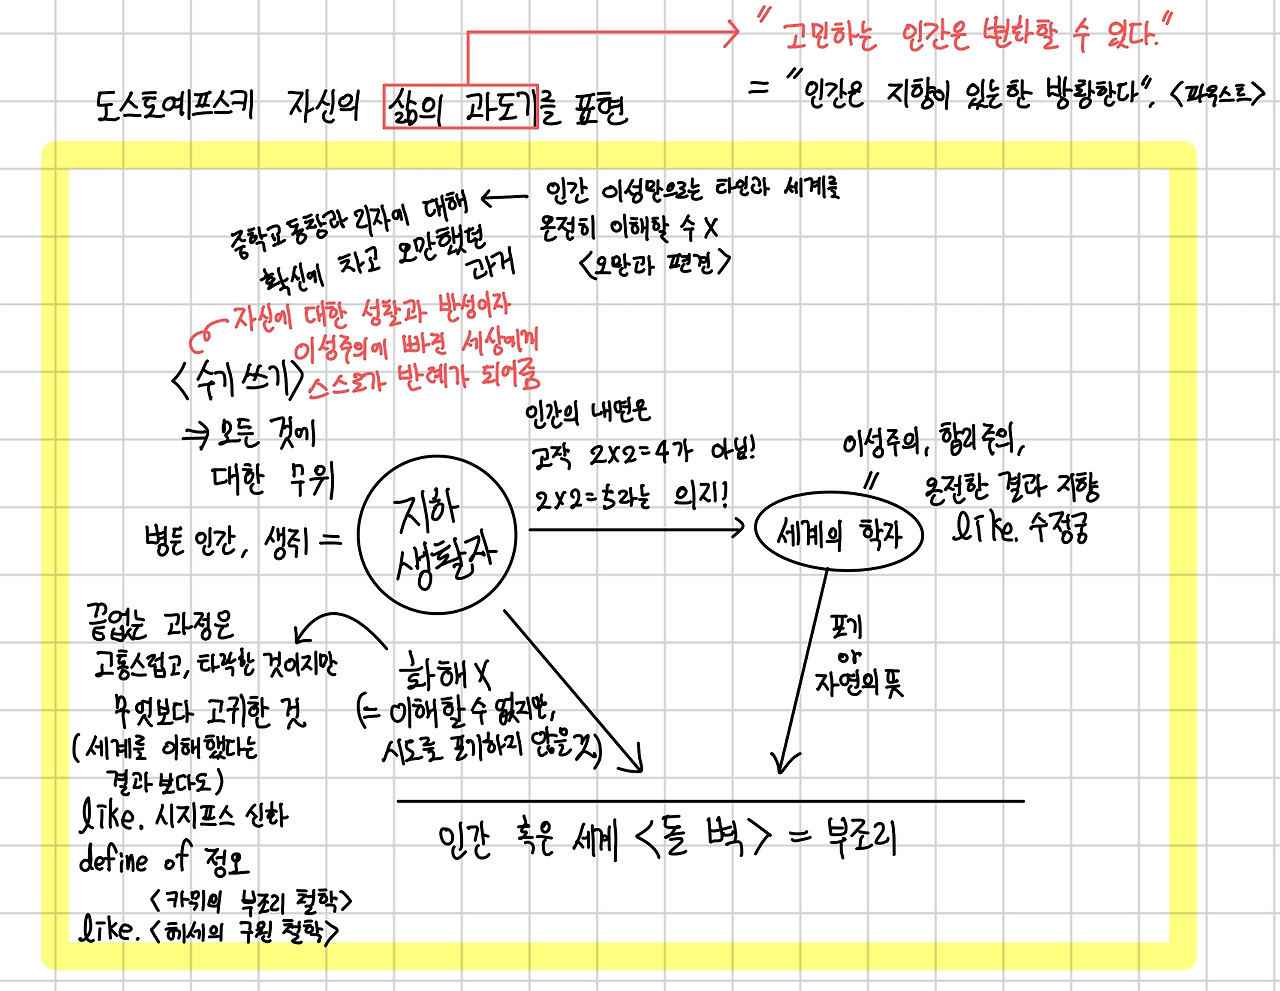 "고민하는 인간은 변화할 수 있다."
= "인간은 지향이 있는한 방황한다". <파우스트>
도스토예프스키 자신의 삶의 과도기를 표현
중학교동창과 리자에 대해
확신에 차고 오만했던
과거
← 인간 이성만으로는 타인과 세계를
온전히 이해할 수 X
<오만과 편견>
자신에 대한 성찰과 반성이자
이성주의에 빠진 세상에게
스스로가 반례가 되어줌
<수기 쓰기>
⇒ 모든 것에
대한 무위
병든 인간, 생쥐 =
지하
생활자
인간의 내면은
고작 2×2=4가 아님!
2×2=5라는 의지!
이성주의, 합리주의,
〃
온전한 결과 지향
like. 수정궁
세계의 학자
포기
or
자연의 뜻
끝없는 과정은
고통스럽고, 타락한 것이지만
무엇보다 고귀한 것
(세계를 이해했다는
결과보다도)
like. 시지프스 신화
define of 정오
<카뮈의 부조리 철학>
like. <헤세의 구원 철학>
화해 X
(= 이해할 수 없지만,
시도를 포기하지 않을것)
인간 혹은 세계 <돌 벽> = 부조리